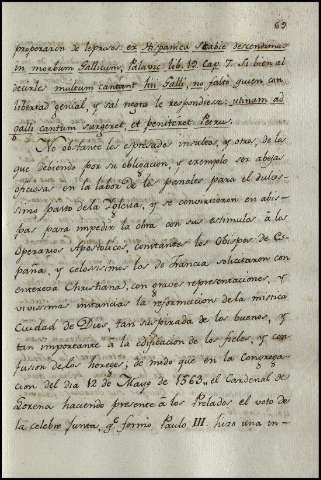 69
prepararon de leprosos ex Hispanica Scabie descendimus
in morbum Gallicum, Palavic. lib. 19. Cap. 7. Si bien al
decirles multum cantant hii Galli, no faltò quien con
libertad genial, y sal negra le respondiese: utinam ad
galli cantum surgeret, et peniteret Petrus.
No obstante los espresados insultos, y otros, de los
que debiendo por su obligacion, y exemplo ser abejas
oficiosas en la labor de los panales para el dulcis-
simo pasto de la Yglesia, y se convirtieron en abis-
pas para impedir la obra con sus estimulos à los
Operarios Apostolicos, constantes los Obispos de Es-
paña, y celosissimos los de Francia solicitaron con
entereza Christiana, con graves representaciones, y
vivissimas instancias la reformacion de la mistica
Ciudad de Dios, tan suspirada de los buenos, y
tan importante à la edificacion de los fieles, y con-
fusion de los hereges, de modo que en la Congrega-
cion del dia 12 de Mayo de 1563, el Cardenal de
Lorena haciendo presente à los Prelados el voto de
la celebre Junta, qe. formò Paulo III. hizo una in-